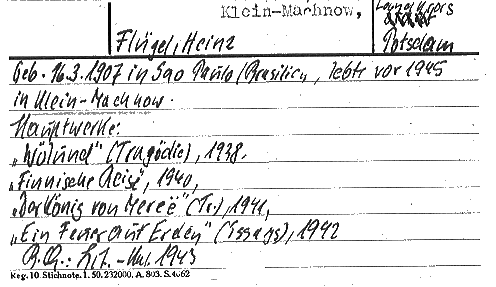 Klein-Machnow,
Flügel, Heinz
Potsdam
Geb. 16.3.1907 in Sao Paulo/Brasilien, lebte vor 1945
in Klein-Machnow.
Hauptwerke:
„Wölund" (Tragödie), 1938.
„Finnische Reise", 1940,
„Der König von Mereë" (Tr.), 1941,
„Ein Feuer auf Erden" (Essays), 1942
Lit. 1943
Reg. 10. Stichnote. 1. 50. 232000. A. 803. S. 4062